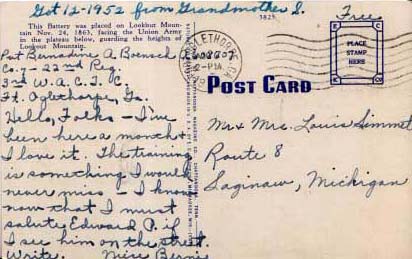 Got 12-1952 from Grandmother S.
This Battery was placed on Lookout Moun-
tain Nov. 24, 1863, facing the Union Army
in the plateau below, guarding the heights of
Lookout Mountain.
3825
Free
Pvt Bernadine A Boensch
Co. 7 - 22nd Reg.
3rd W.A.C.T.C.
Ft. Oglethorpe, Ga.
Hello, Folks - I've
been here a month &
I love it. The training
is something I would
never miss - I know
now that I must
salute Edward P. if
I see him on the street.
Write. Niece Bernie
OGLETHORPE
PLACE
STAMP
HERE
POST CARD
Mr & Mrs. Louis Simmet
Route 8
Saginaw, Michigan